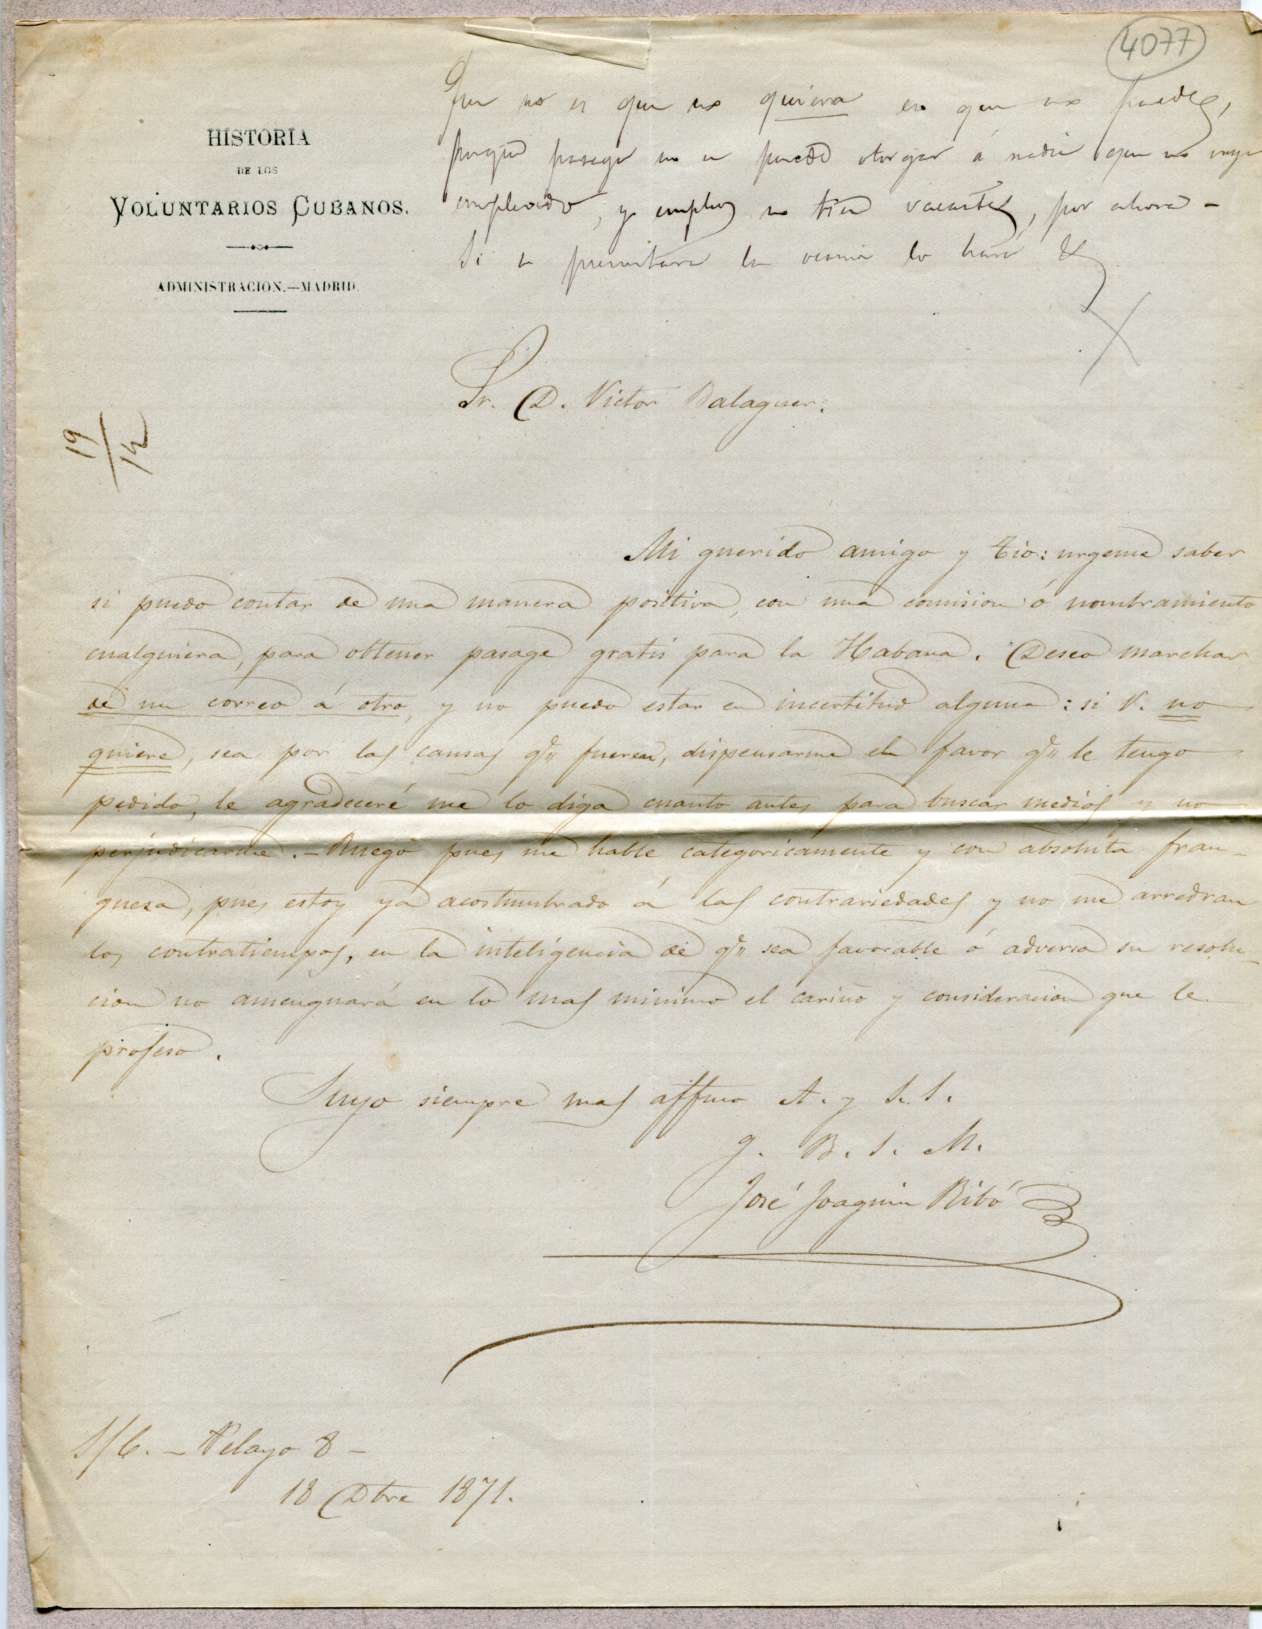 4077
HISTORIA
DE LOS
VOLUNTARIOS CUBANOS.
ADMINISTRACION.—MADRID.
Que no es que no quiera es que no puede,
porque pasage no se puede otorgar á nadie que no vaya
empleado, y empleos no tiene vacantes, por ahora -
Si se presentara la ocasion lo hará &
19/12
Sr. D. Victor Balaguer.
Mi querido amigo y tio: urgeme saber
si puedo contar de una manera positiva, con una comision ó nombramiento
cualquiera, para obtener pasage gratis para la Habana. Deseo marchar
de un correo á otro, y no puedo estar en incertitud alguna: si V. no
quiere, sea por las causas qe. fueren, dispensarme el favor qe. le tengo
pedido, le agradeceré me lo diga cuanto antes para buscar medios y no
perjudicarme. - Ruego pues me hable categoricamente y con absoluta fran-
queza, pues estoy ya acostumbrado á las contrariedades y no me arredran
los contratiempos, en la inteligencia de qe. sea favorable ó adversa su resolu-
cion no amenguará en lo mas minimo el cariño y consideracion que le
profeso.
Suyo siempre mas affmo A. y S. S.
q. B. S. M.
José Joaquin Ribó
S/C. - Pelayo 8 -
18 Dbre 1871.